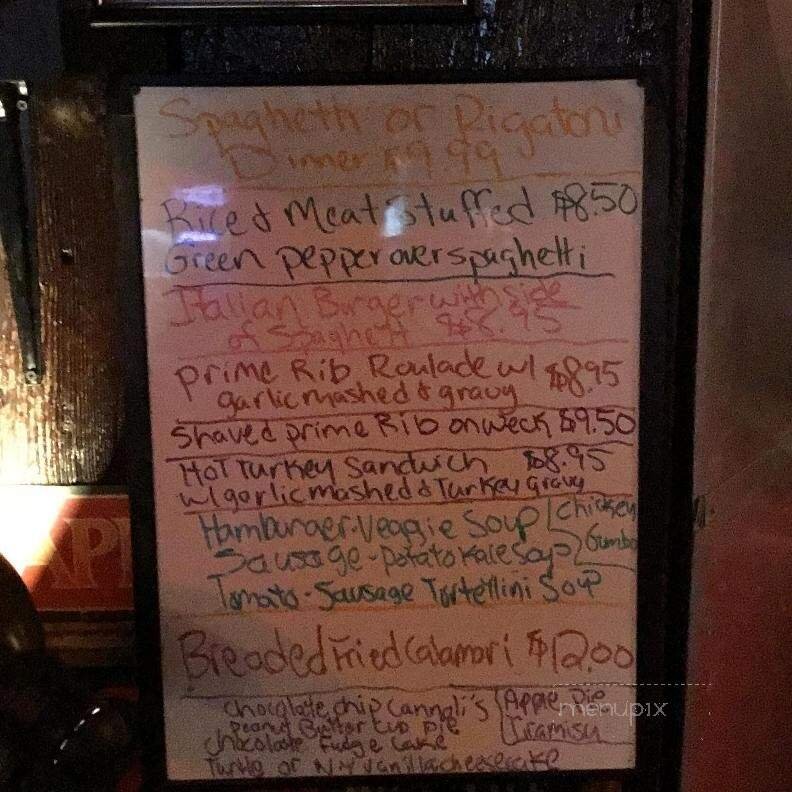 Spaghetti or Rigatoni
Dinner $9.99
Rice & Meat Stuffed $8.50
Green pepper over spaghetti
Italian Burger with side
of Spaghetti $8.95
prime Rib Roulade w/ $8.95
garlic mashed & gravy
Shaved prime Rib on weck $9.50
HOT Turkey Sandwich $8.95
w/ garlic mashed & Turkey Gravy
Hamburger-Veggie Soup Chicken
Sausage-Potato Kale Soup Gumbo
Tomato-Sausage Tortellini Soup
Breaded Fried Calamari $12.00
Chocolate chip Cannoli's Apple Pie
Peanut Butter Cup Pie Tiramisu
chocolate Fudge Cake
Turtle or N.Y Vanilla cheesecake
menupix